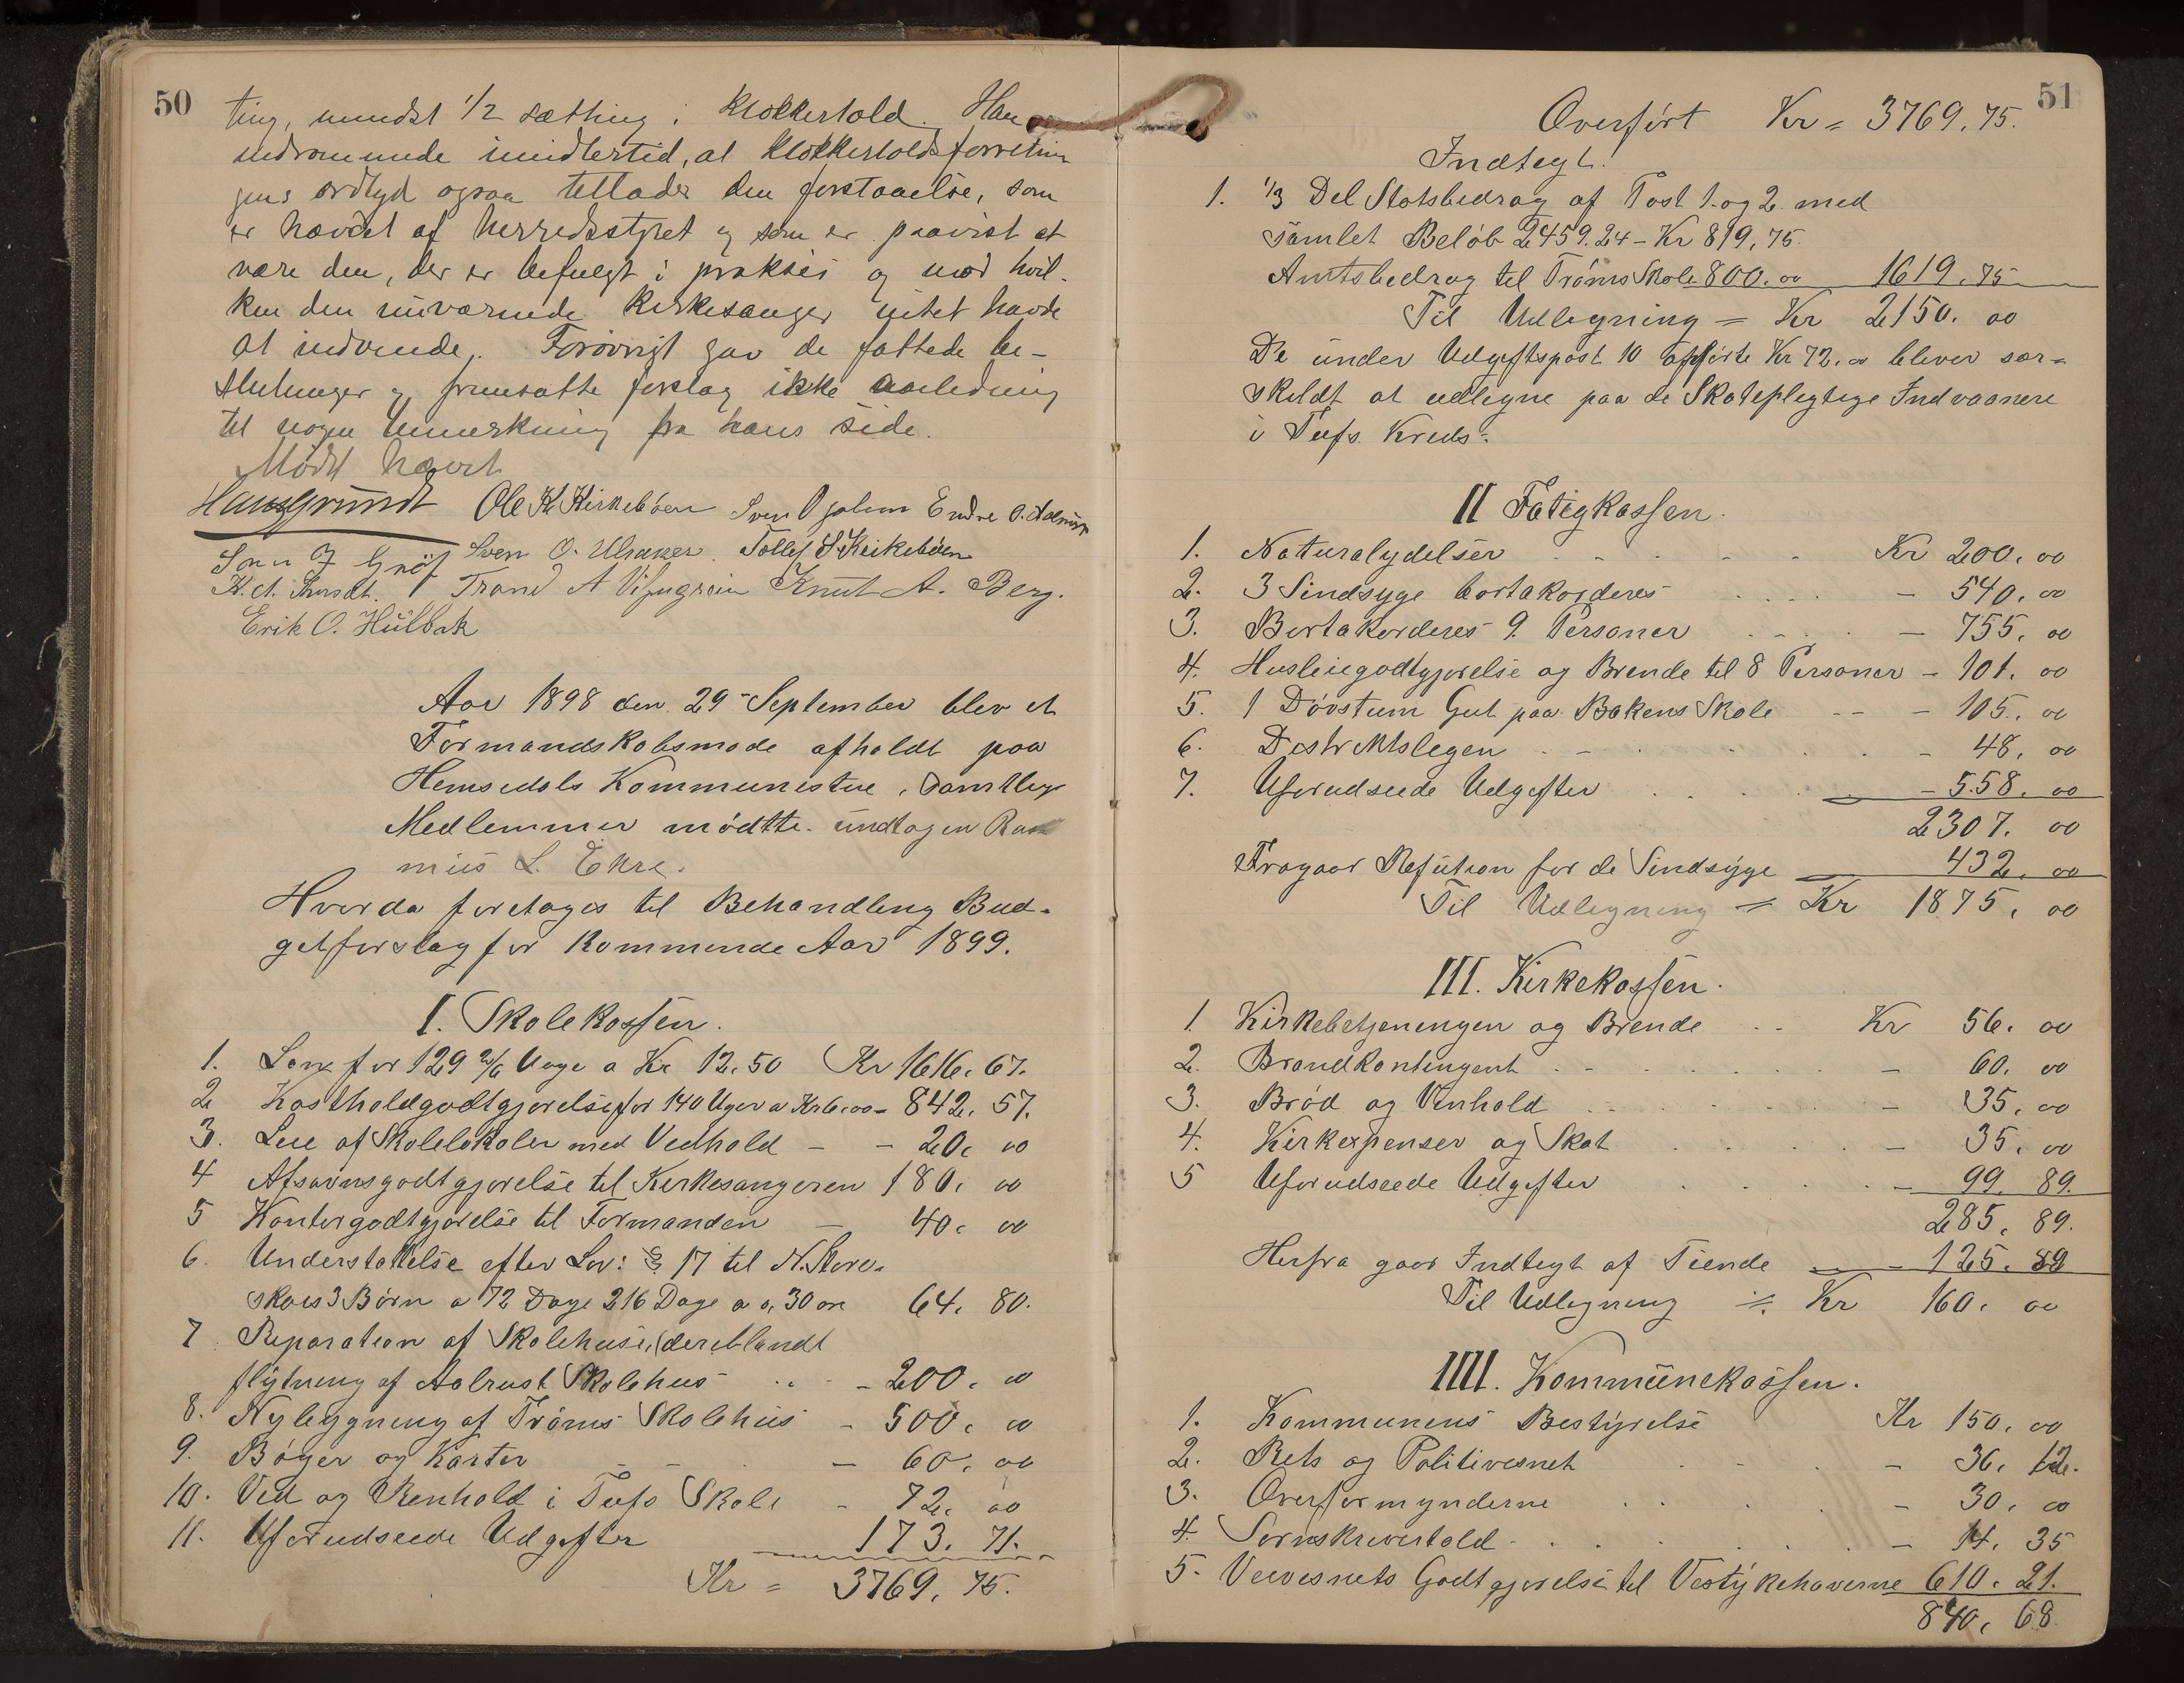 50
ting, mindst 1/2 sætting i Klokkertold. Han
indrømmede imidlertid, at Klokkertoldsforretnin
gens ordlyd ogsaa tillader den forstaaelse, som
er hævdet af herredsstyret og som er paavist at
være den, der er befulgt i praksis og mod hvil-
ken den nuværende Kirkesanger intet havde
at indvende. Forøvrigt gav de fattede be-
slutninger og fremsatte forslag ikke anledning
til nogen bemerkning fra hans side.
Mødet hævet
Hans Grundt Ole K. Kirkebøen Sven O Endre O.
Sven O. Ulsaker. Tollef S. Kirkebøen
K. A. Trond A Knut A. Berg.
Erik O. Hulbak
Aar 1898 den 29 September blev et
Formandskabsmøde afholdt paa
Hemsedals Kommunestue, Samtlige
Medlemmer mødtte. undtagen Ras
mus L. Ekre.
Hvor da foretoges til Behandling Bud-
getforslag for Kommende Aar 1899.
I. Skolekassen.
1. Løn for 129 2/6 Uge a Kr 12.50 Kr 1616. 67.
2 Kostholdgodtgjørelse for 140 Uger a Kr 6.00 - 842. 57.
3. Leie af Skolelokaler med Vedhold - - 20. 00
4 Afsavnsgodtgjørelse til Kirkesangeren 180. 00
5 Kontorgodtgjørelse til Formanden - 40. 00
6. Understøttelse efter Lov: § 17 til N. Store-
skars 3 Børn a 72 Dage 216 Dage a 0,30 øre 64. 80.
7 Reparation af Skolehuse, (deriblandt
flytning af Aalrust Skolehus - 200. 00
8. Nyleggning af Trøms Skolehus - 500. 00
9. Bøger og Karter - 60. 00
10. Ved og Renhold i Tufs Skole - 72. 00
11. Uforudseede Udgifter 173. 71.
Kr = 3769. 75.
51
Overført Kr = 3769. 75.
Indtegt.
1. 1/3 Del Statsbedrag af Post 1. og 2. med
samlet Beløb 2459.24 - Kr 819.75.
Amtsbedrag til Trøms Skole 800.00 1619.75
Til Udligning = Kr 2150. 00
De under Udgiftspost 10 opførte Kr 72.00 bliver sær-
skildt at udligne paa de Skatepligtige Indvaanere
i Tufs Kreds.
II Fatigkassen.
1. Naturalydelser Kr 200. 00
2. 3 Sindsyge bortakorderes - 540. 00
3. Bortakorderes 9. Personer - 755. 00
4. Husleiegodtgjørelse og Brende til 8 Personer - 101. 00
5. 1 Døvstum Gut paa Bakens Skole - 105. 00
6. Distriktslegen - 48. 00
7. Uforudseede Udgifter - 558. 00
2307. 00
Fragaar Refution for de Sindsyge 432. 00
Til Udligning = Kr 1875. 00
III. Kirkekassen.
1 Kirkebetjeningen og Brende Kr 56. 00
2. Brandkontingent - 60. 00
3. Brød og Vinhold - 35. 00
4. Kirkexpenser og Skat - 35. 00
5 Uforudseede Udgifter - 99. 89.
285. 89.
Herfra gaar Indtegt af Tiende - 125. 89
Til Udligning Kr 160. 00
IIII. Kommünekassen.
1. Kommunens Bestyrelse Kr 150. 00
2. Rets og Politivesnet - 36. 12.
3. Overformynderne - 30. 00
4. Sornskrivertold - 14. 35
5. Veivesnets Godtgjørelse til Vestykehaverne 610. 21.
840. 68